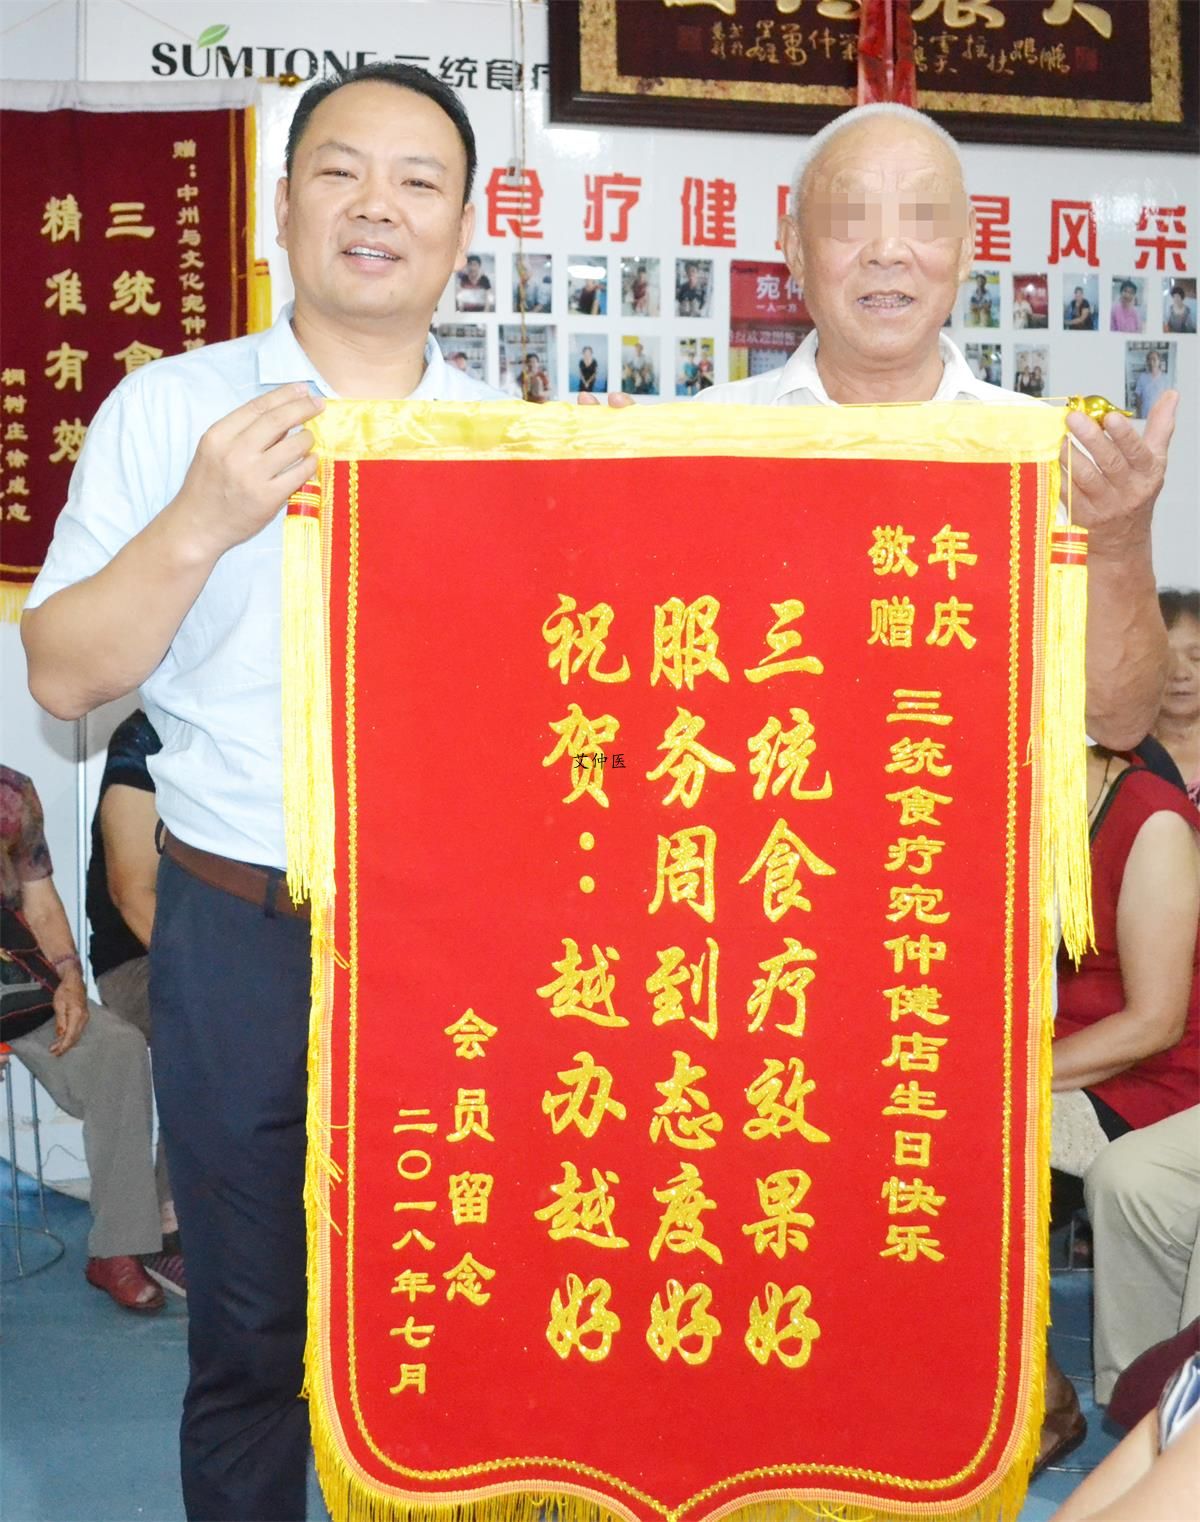 SUMTONE 三统食疗
食疗健
星风采
宛仲
一人一方
赠：中州与文化宛仲健
三统食
精准有效
桐树庄徐成志
年庆
敬赠
三统食疗宛仲健店生日快乐
三统食疗效果好
服务周到态度好
祝贺：越办越好
会员留念
二〇一八年七月
艾仲医